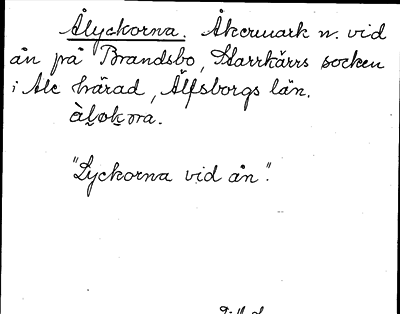 Ålyckorna. Åkermark n. vid
ån på Brandsbo, Starrkärrs socken
i Ale härad, Älfsborgs län.
"Lyckorna vid ån".